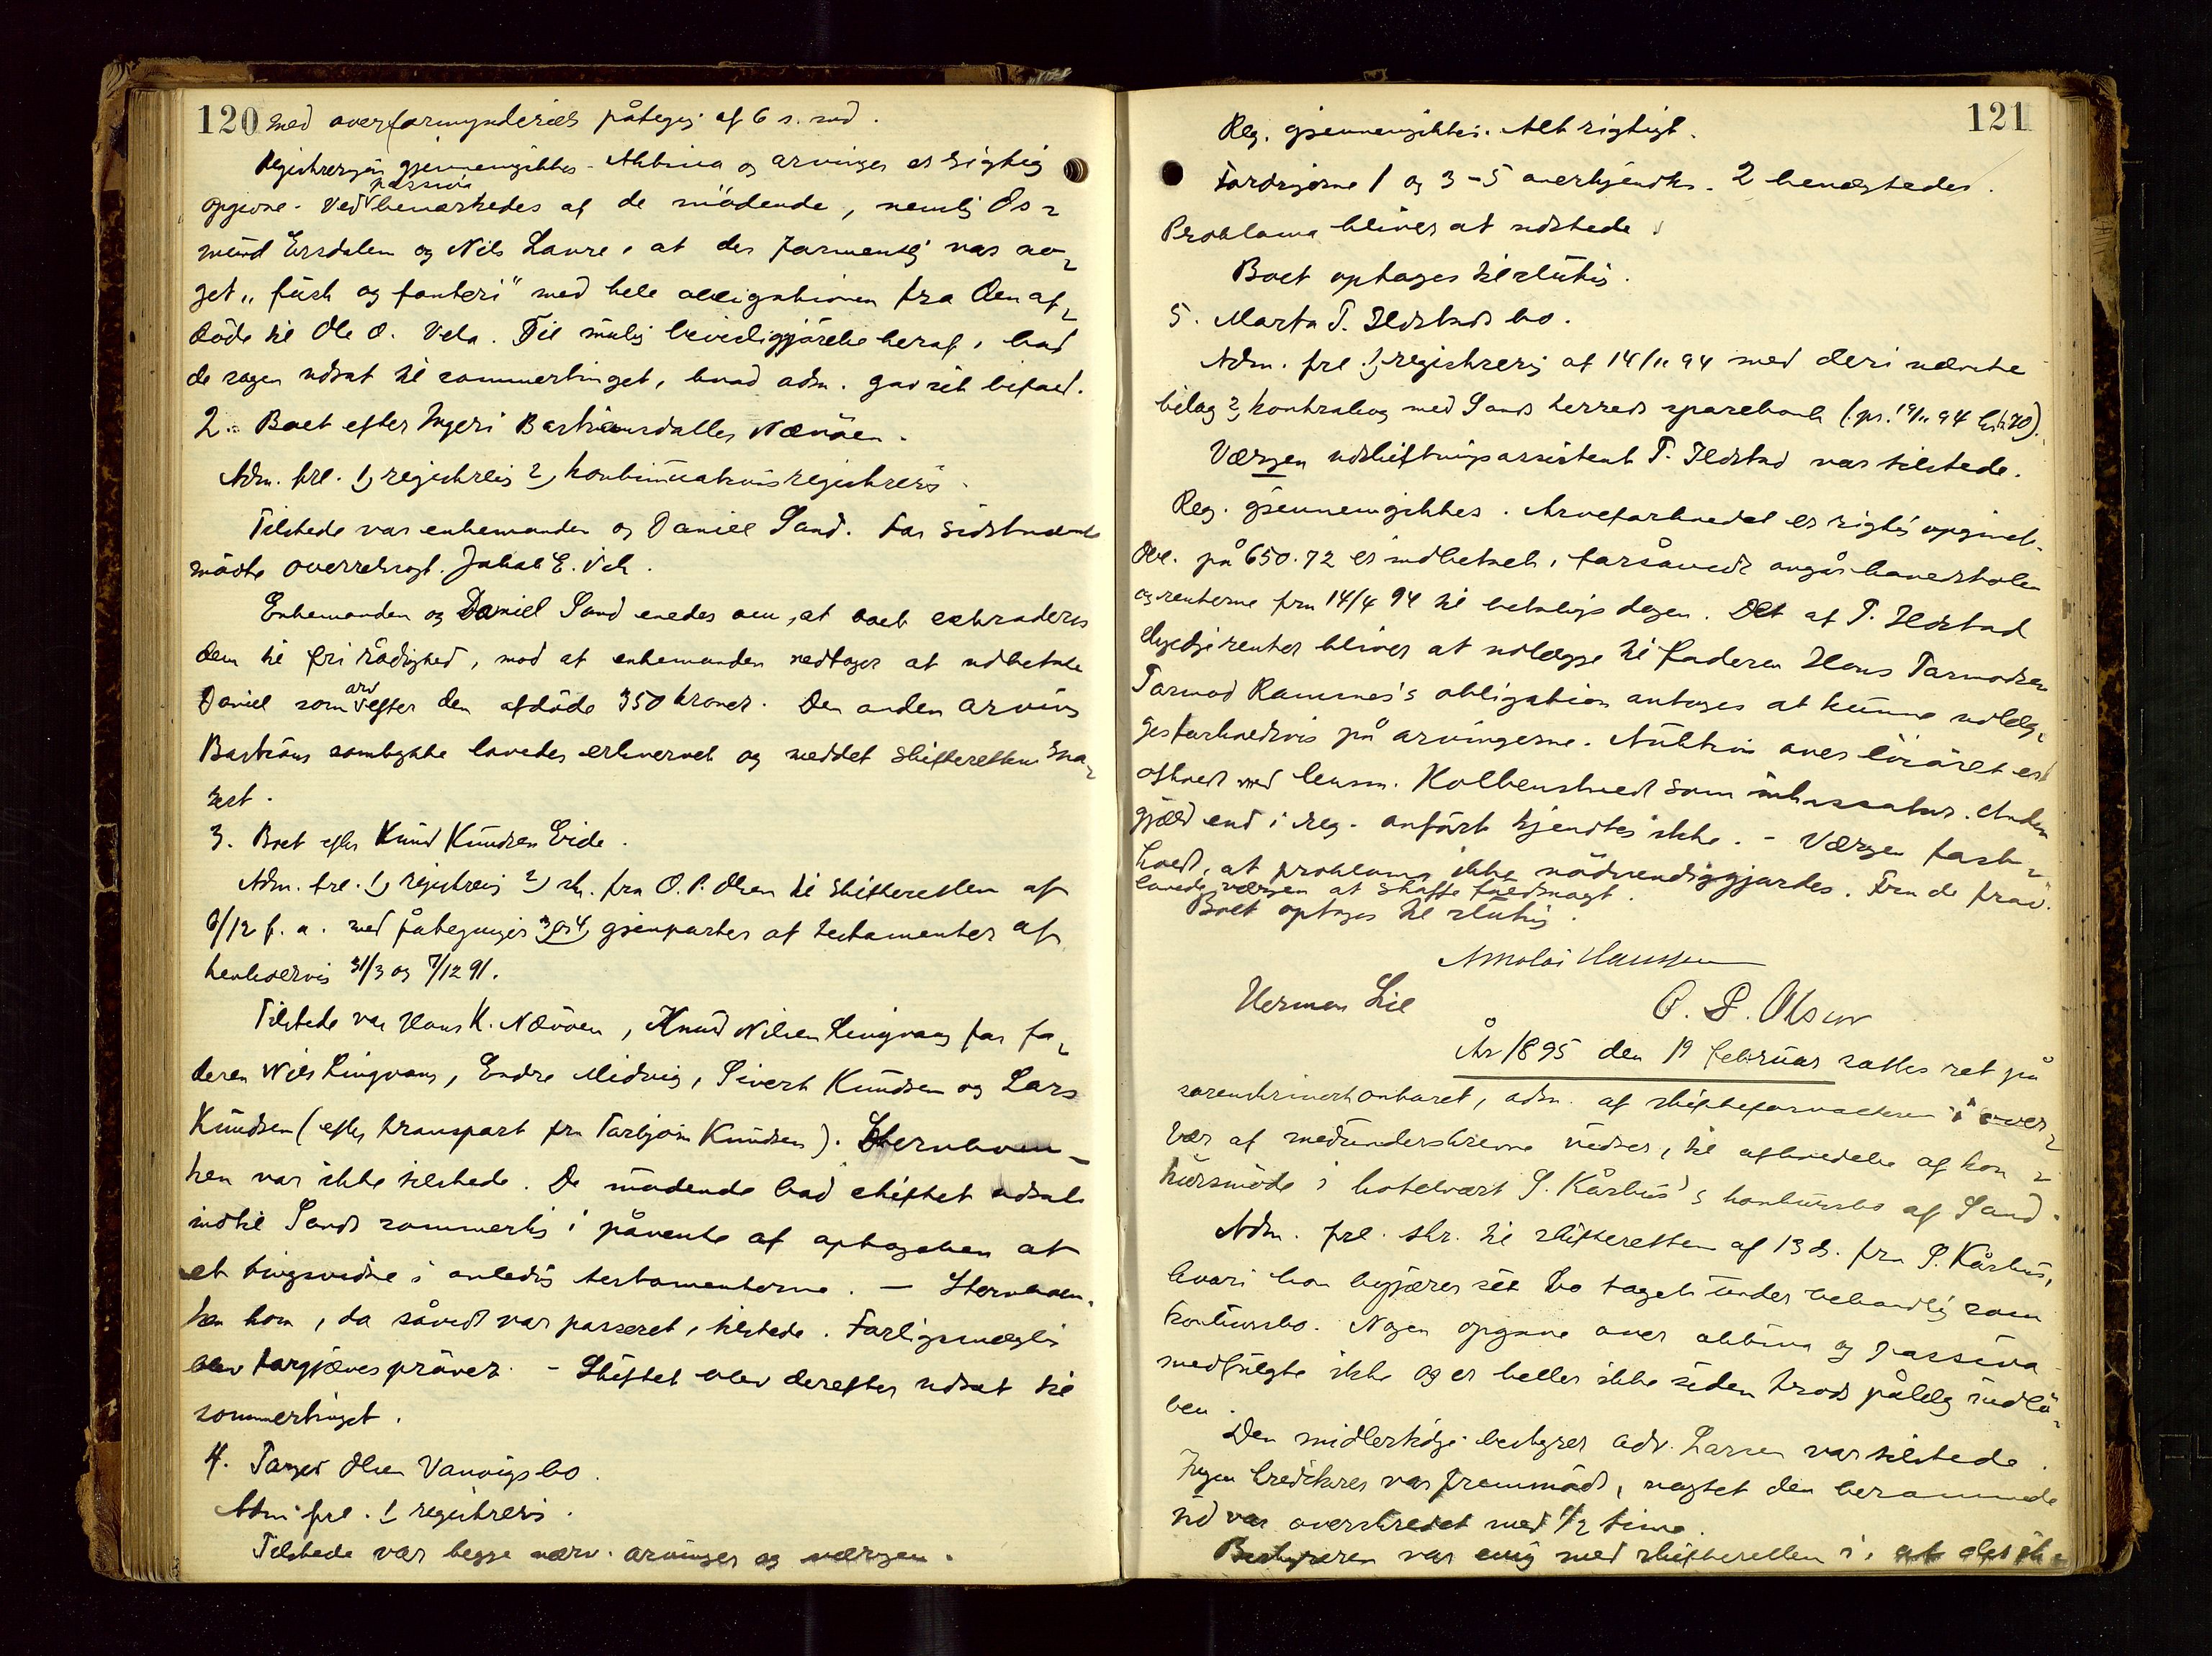 120 med overformynderiets påtegng af 6 s. md.
Registreringen gjennemgikkes. Aktiva og arvinger er rigtig
passiva
opgivne. Ved bemærkedes af de mödende, nemlig Os-
mund Ersdalen og Nils Lavre, at der formentlig var no-
get "fusk og fanteri" med hele obligationen fra den af-
döde til Ole O. Vela. Til mulig beviseliggjörelse heraf, bad
de sagen udsat til sommertinget, hvad adm. gav sit bifald.
2. Boet efter Ingeri Bastiansdatter Nævöen.
Adm. frl. 1) registreris 2) kontinuationsregistreris
Tilstede var enkemanden og Daniel Sand. For sidstnævnte
mödte overretssagf. Jakob E. Vik.
Enkemanden og Daniel Sand enedes om, at boet extraderes
dem til fri rådighed, mod at enkemanden vedtager at udbetale
arv
Daniel som efter den afdöde 350 kroner. Den anden arving
Bastians samtykke lovedes erhvervet og meddelt skifteretten sna-
rest.
3. Boet efter Knud Knudsen Eide.
Adm. frl. 1) registreris 2) sk. fra O. P. Olsen til skifteretten af
6/12 f. a. med påtegninger 3 og 4) gjenparter af testamenter af
henholdsvis 31/3 og 7/12 91.
Tilstede var Hans K. Nævöen, Knud Nilsen Lingvang for fa-
deren Nils Lingvang, Endre Midvig, Sivert Knudsen og Lars
Knudsen (efter transport fra Torbjörn Knudsen).
ken var ikke tilstede. De mödende bad skiftet udsat
indtil Sands sommerting i påvente af optagelsen af
et tingsvidne i anledng testamenterne. —
ken kom, da såvidt var passeret, tilstede. Forligsmægling
blev forgjæves prövet. - Skiftet blev derefter udsat til
sommertinget.
4. Torger Olsen Vanvigs bo.
Adm. frl. 1 registreris.
Tilstede var begge nærv. arvinger og værgen.
121
Reg. gjennemgikkes. Alt rigtigt.
Fordringerne 1 og 3-5 anerkjendtes. 2 benegtedes.
Proklama bliver at udstede.
Boet optages til slutng.
5. Marta T. Ildstads bo.
Adm. frl. 1) registrering af 14/11 94 med deri nævnte
bilag 2) kontrabog med Sands herreds sparebank (pr. 19/11 94
Værgen udskiftningsassistent T. Ildstad var tilstede.
Reg. gjennemgikkes. Arveforholdet er rigtig opgivet.
Obl. på 650.72 er indbetalt, forsåvidt angår hovedstolen
og renterne fra 14/4 94 til betalingsdagen. Det af T. Ildstad
renter bliver at udlægge til faderen Hans Tormodsen
Tormod Ramnes's obligation antages at kunne udlæg-
ges forholdsvis på arvingerne. Auktion over lösöret er
afholdt med lensm. Kolbenstvedt som inkassator. Anden
gjæld end i reg. anfört kjendtes ikke. - Værgen fast-
holdt, at proklama ikke nödvendiggjordes. Fra de frav.
lovede værgen at skaffe fuldmagt.
Boet optages til slutng.
Arnoldi Hanssen
Herman Lie
O. P. Olsen
År 1895 den 19 februar sattes ret på
sorenskriverkontoret, adm. af skifteforvalteren i over-
vær af medunderskrevne vidner, til afholdelse af kon-
kursmöde i hotelvært S. Kårhus's konkursbo af Sand.
Adm. frl. skr. til skifteretten af 13 ds. fra S. Kårhus,
hvori han begjærer sit bo taget under behandlig som
konkursbo. Nogen opgave over aktiva og passiva
medfulgte ikke og er heller ikke siden trods pålæg indlö-
ben.
Den midlertidige bestyrer adv. Larsen var tilstede.
Ingen kreditorer var fremmödt, uagtet den berammede
tid var overskredet med 1/2 time.
Bestyreren var enig med skifteretten i, at det ik